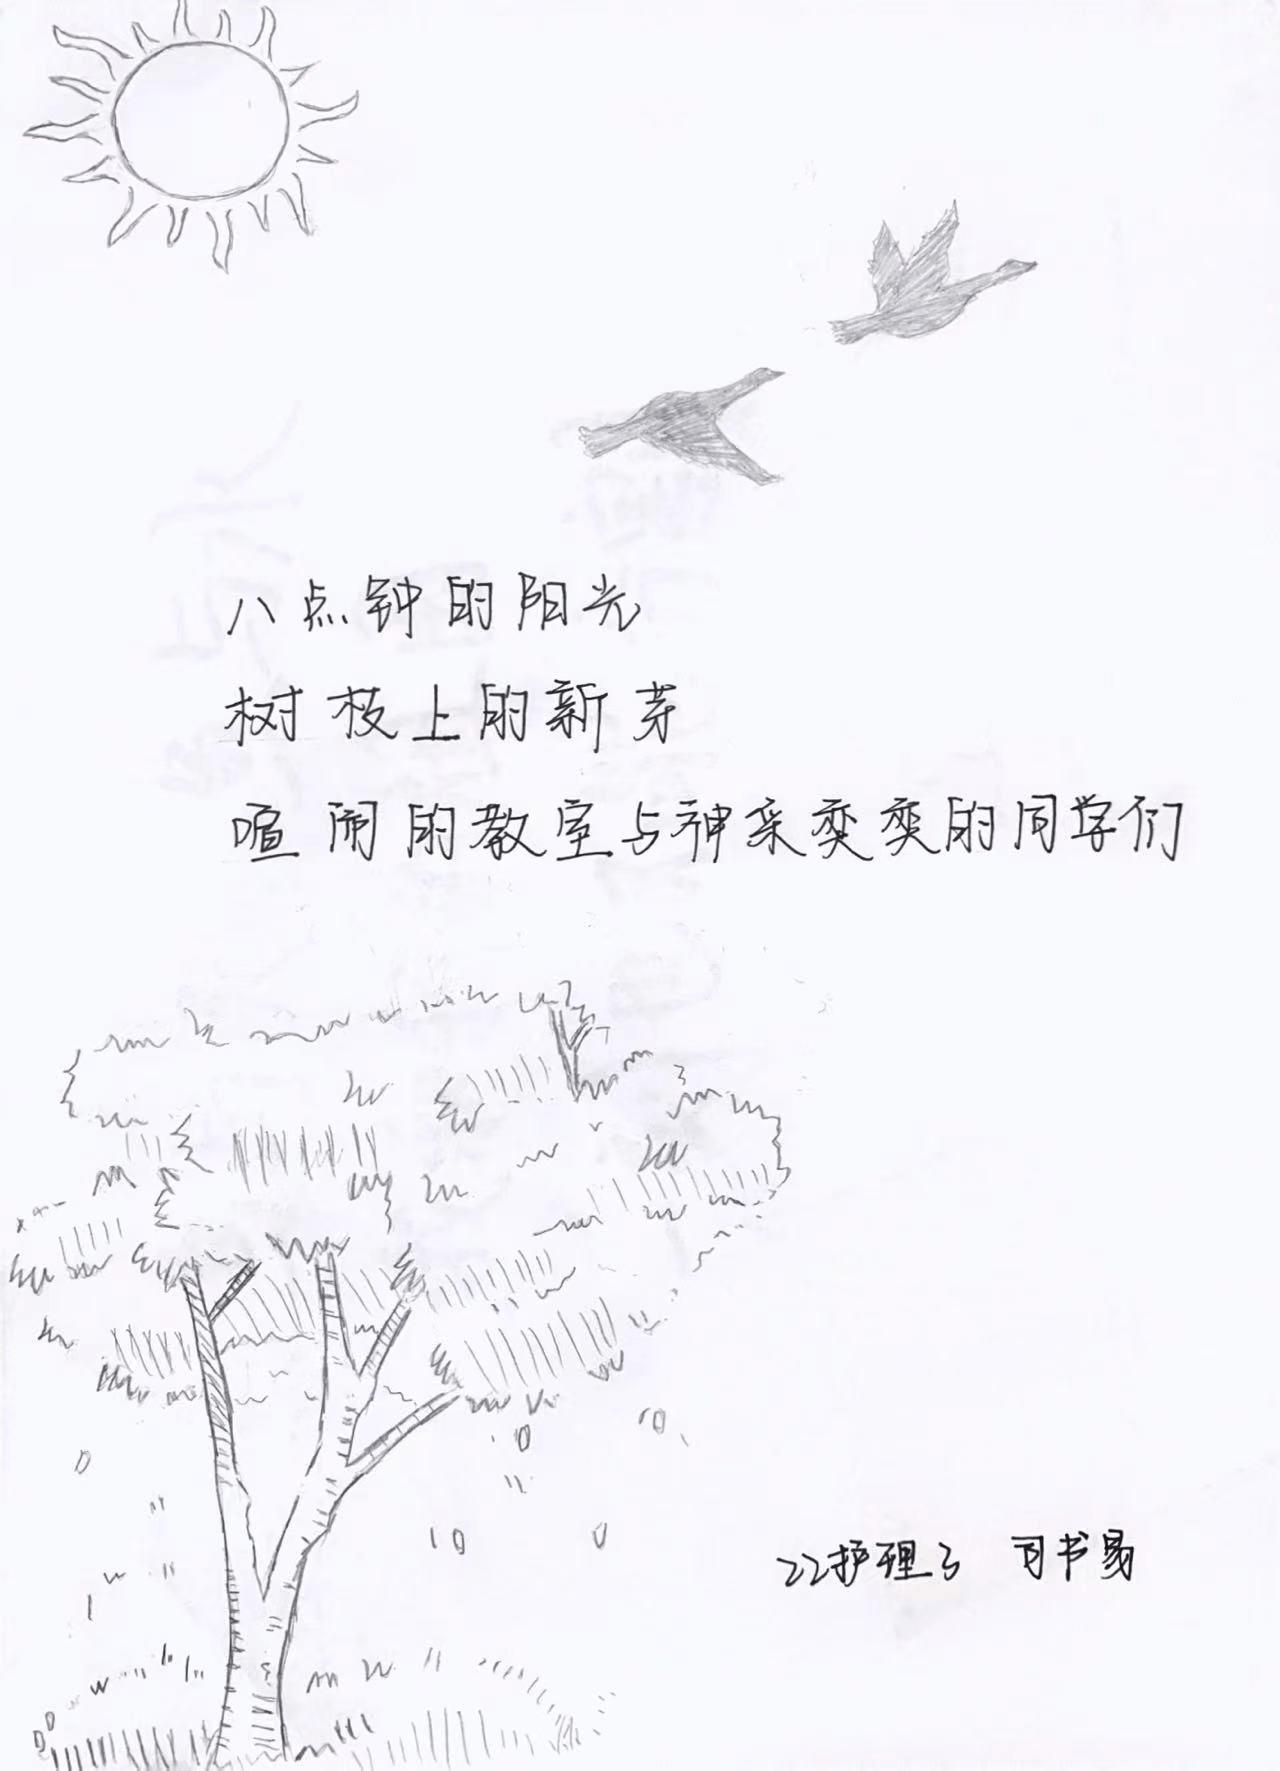 八点钟的阳光
树枝上的新芽
喧闹的教室与神采奕奕的同学们
22护理3 司书易